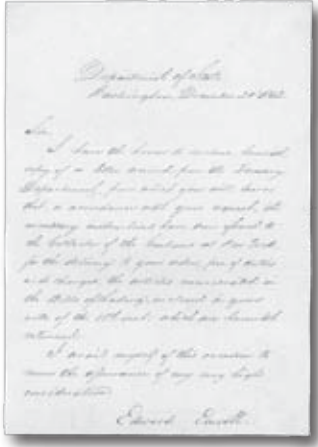 Department of State
Washington, December 20 1852.
Sir,
I have the honor to enclose herewith
copy of a letter received from the Treasury
Department, from which you will learn
that in accordance with your request, the
necessary instructions have been given to
the Collector of the Customs at New York
for the delivery to your order, free of duties
and charges the articles enumerated in
the Bills of Lading, enclosed in your
note of the which are herewith
returned.
I avail myself of this occasion to
renew the assurance of my very high
consideration.
Edward Everett.